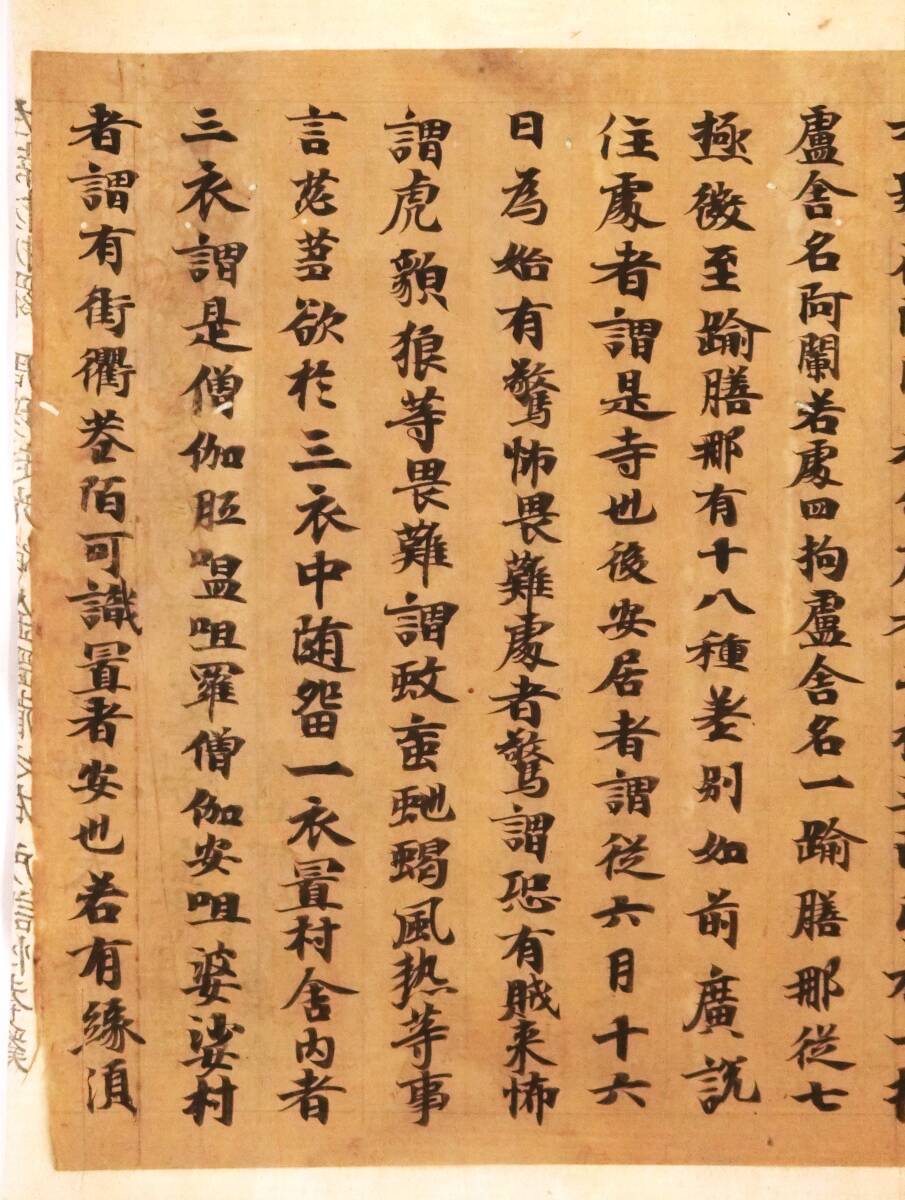 盧舍名阿蘭若處四拘盧舍名一踰膳那從七
極微至踰膳那有十八種差別如前廣說
住處者謂是寺也後安居者謂從六月十六
日為始有驚怖畏難處者驚謂恐有賊来怖
謂虎豹狼等畏難謂蚊虻虵蝎風熱等事
言苾芻欲於三衣中随留一衣置村舍內者
三衣謂是僧伽胝嗢呾羅僧伽安呾婆娑村
者謂有街衢巷陌可識置者安也若有緣須